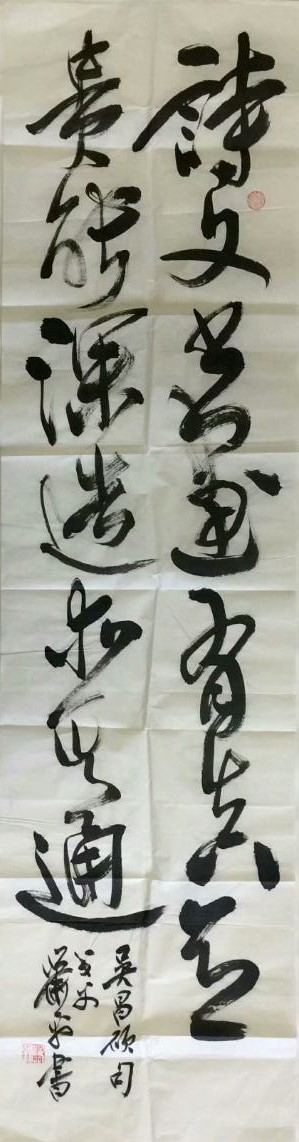 詩文書畫有真意
貴能深造求其通
吳昌碩句
書